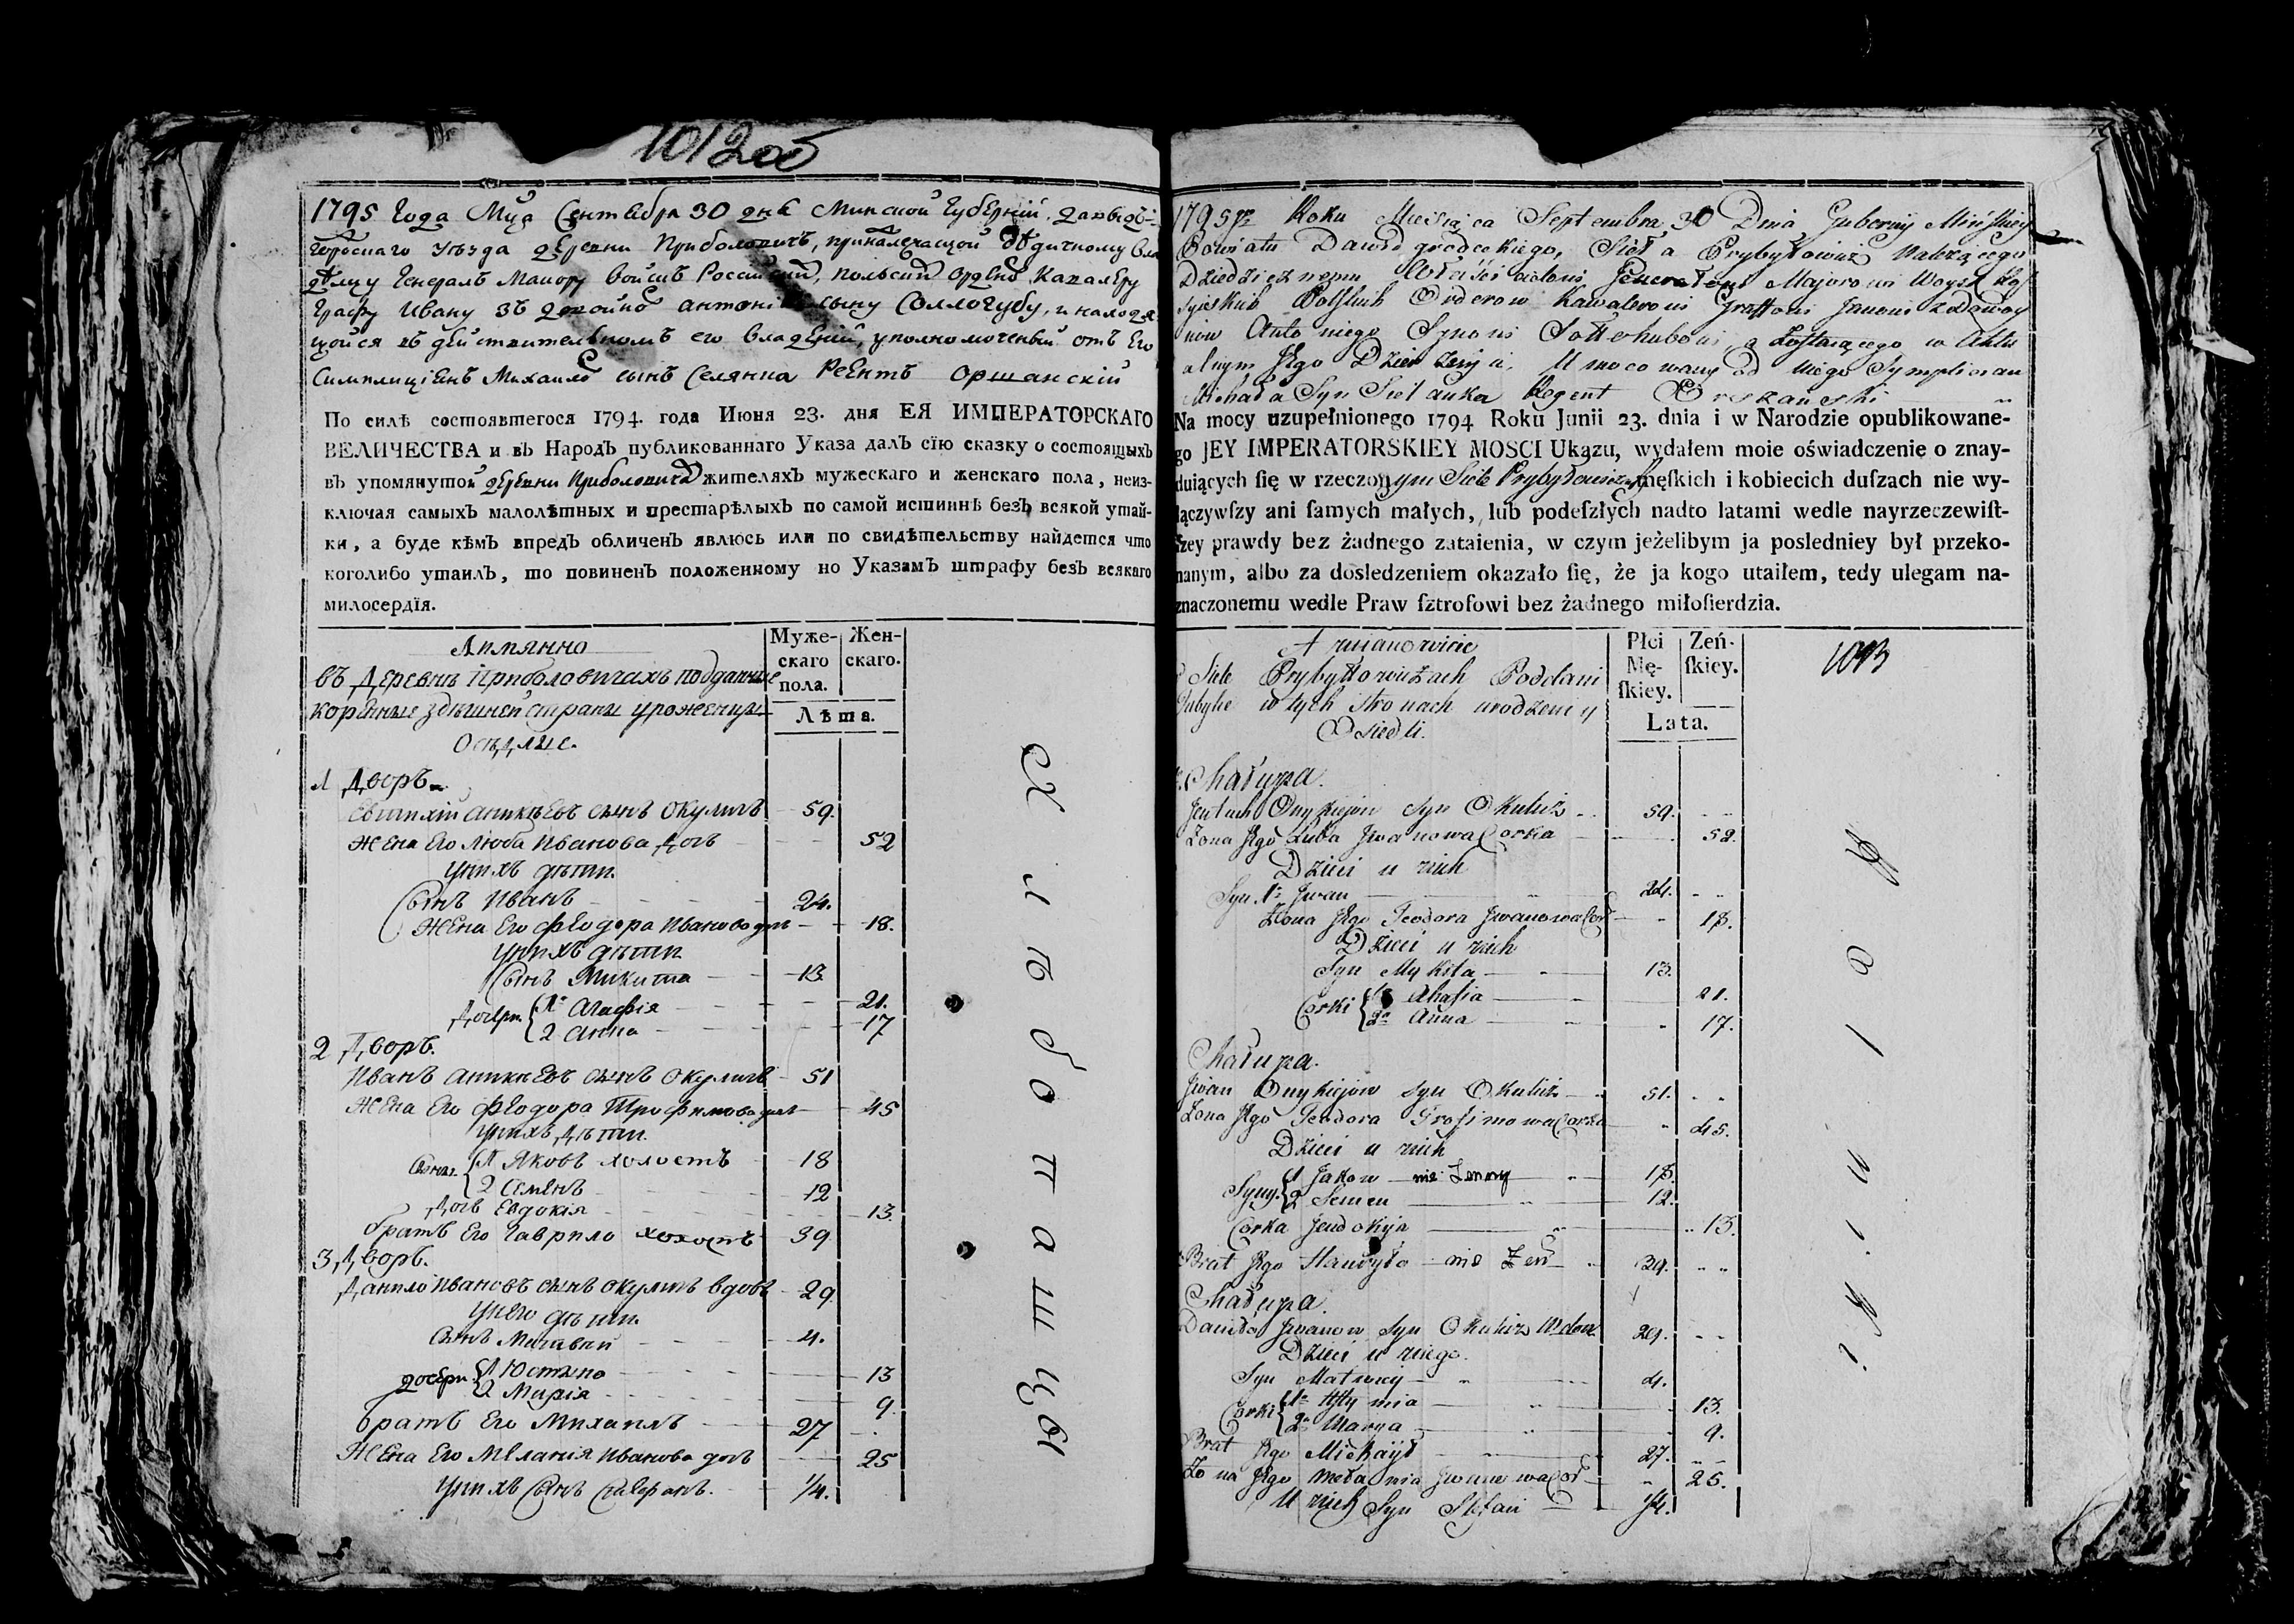 1012об
1795 года Мца Сентября 30 дня Минской Губерніи, Давыдо-
городскаго уезда деревни Приболовичъ, принадлежащой дѣдичному Вла
дѣлцу Генералъ Маиору войскъ Россійскихъ, польскихъ Орденъ Кавалеру
Графу Ивану зъ двойно Антоніеву сыну Соллогубу, и находя
щойся въ действительномъ его владеніи, уполномоченый отъ Его
Симплиціянъ Михаила сынъ Селянка Реентъ Оршанскій
По силѣ состоявшегося 1794. года Июня 23. дня ЕЯ ИМПЕРАТОРСКАГО
ВЕЛИЧЕСТВА и въ Народъ публикованнаго Указа далъ сїю сказку о состоящыхъ
въ упомянутой деревни Приболовичахъ жителяхъ мужескаго и женскаго пола, неиз-
ключая самыхъ малолѣтных и престарѣлыхъ по самой истиннѣ безъ всякой утай-
ки, а буде кѣмъ впредъ обличенъ явлюсь или по свидѣтельству найдется что
коголибо утаилъ, то повиненъ положенному по Указамъ штрафу безъ всякаго
милосердїя.
Аимянно
въ Деревнѣ Приболовичахъ подданные
коренные здѣшней страны уроженцы
Оседлые.
Муже-
скаго
пола.
Жен-
скаго.
Лѣта.
1 Дворъ.
Евтихій Аникѣевъ сынъ Окуличъ 59.
Жена Его Люба Иванова Дочь 52
У нихъ дѣти.
Сынъ Иванъ 24.
Жена Его Феодора Иванова дочь 18.
У нихъ дѣти
Сынъ Микита 13.
Дочери { 1 Агафія 21.
2 Анна 17
2 Дворъ.
Иванъ Аникѣевъ сынъ Окуличъ 51
Жена Его Феодора Трофимова дочь 45
У нихъ Дѣти.
Сыны { 1 Яковъ холостъ 18
2 Семенъ 12
Дочь Евдокія 13.
братъ Его Гаврило холостъ 39
3 Дворъ.
Данило Ивановъ сынъ Окуличъ вдовъ 29.
У него дѣти.
Сынъ Матвей 4.
дочери { 1 13
2 Марія 9.
братъ Его Михаилъ 27
Жена Его Меланія Иванова дочь 25
У нихъ Сынъ Стефанъ. 1/4.
Хлѣбопашцы
1795go Roku Miesiąca Septembra 30 Dnia Gubernij Mińskiey
Powiatu Dawidgrodeckiego, Sioła Przybyłowicz Należącego
Dziedzicznemu Właścicielowi Jenerałowi Majorowi Woysk Ros
syiskich Polskich Orderow Kawalerowi Graffowi Janowi z Dwoy
now Antoniego Synowi Sołłohubowi, a Zostaiącego w Aktu
alnym Jego Dzierżeniu, Umocowany od Niego Symplician
Michała Syn Sielanka Regent Orszański
Na mocy uzupełnionego 1794 Roku Junii 23. dnia i w Narodzie opublikowane-
go JEY IMPERATORSKIEY MOSCI Ukazu, wydałem moie oświadczenie o znay-
duiących ſię w rzeczonym Siele Przybyłowiczach męſkich i kobiecich duſzach nie wy-
łączywſzy ani ſamych małych, lub podeſzłych nadto latami wedle nayrzeczewiſt-
ſzey prawdy bez żadnego zataienia, w czym jeżelibym ja posledniey był przeko-
nanym, albo za dosledzeniem okazało ſię, że ja kogo utaiłem, tedy ulegam na-
znaczonemu wedle Praw ſztrofowi bez żadnego miłoſierdzia.
A mianowicie
Siele Przybyłłowiczach Poddani
w tych stronach urodzeni y
Osiedli.
Płci
Mę-
ſkiey.
Zeń-
ſkiey.
Lata.
1013
Chałupa.
Jeutuch Onykiejow Syn Okulicz 59.
Zona Jego Luba Jwanowa Corka 52.
Dzieci u nich
Syn 1o Jwan 24.
Zona Jego Teodora Jwanowa Cor 18.
Dzieci u nich
Syn Mykita 13.
Corki { 1a Ahafia 21.
2a Anna 17.
Chałupa.
Jwan Onykiejow syn Okulicz 51.
Zona Jego Teodora Trofimowa Corka 45.
Dzieci u nich
Syny { 1 Jakow nie Zenny 18.
2 Semen 12.
Corka Jeudokija 13.
Brat Jego Hawryło nie Zen 39.
Chałupa.
Daniło Jwanow Syn Okulicz Wdow 29.
Dzieci u niego.
Syn Matwiey 4.
Corki { 1a 13.
2a Marya 9.
Brat Jego Michaył 27.
Zona Jego Mełania Jwanowa Cor 25.
U nich Syn Stefan 1/4.